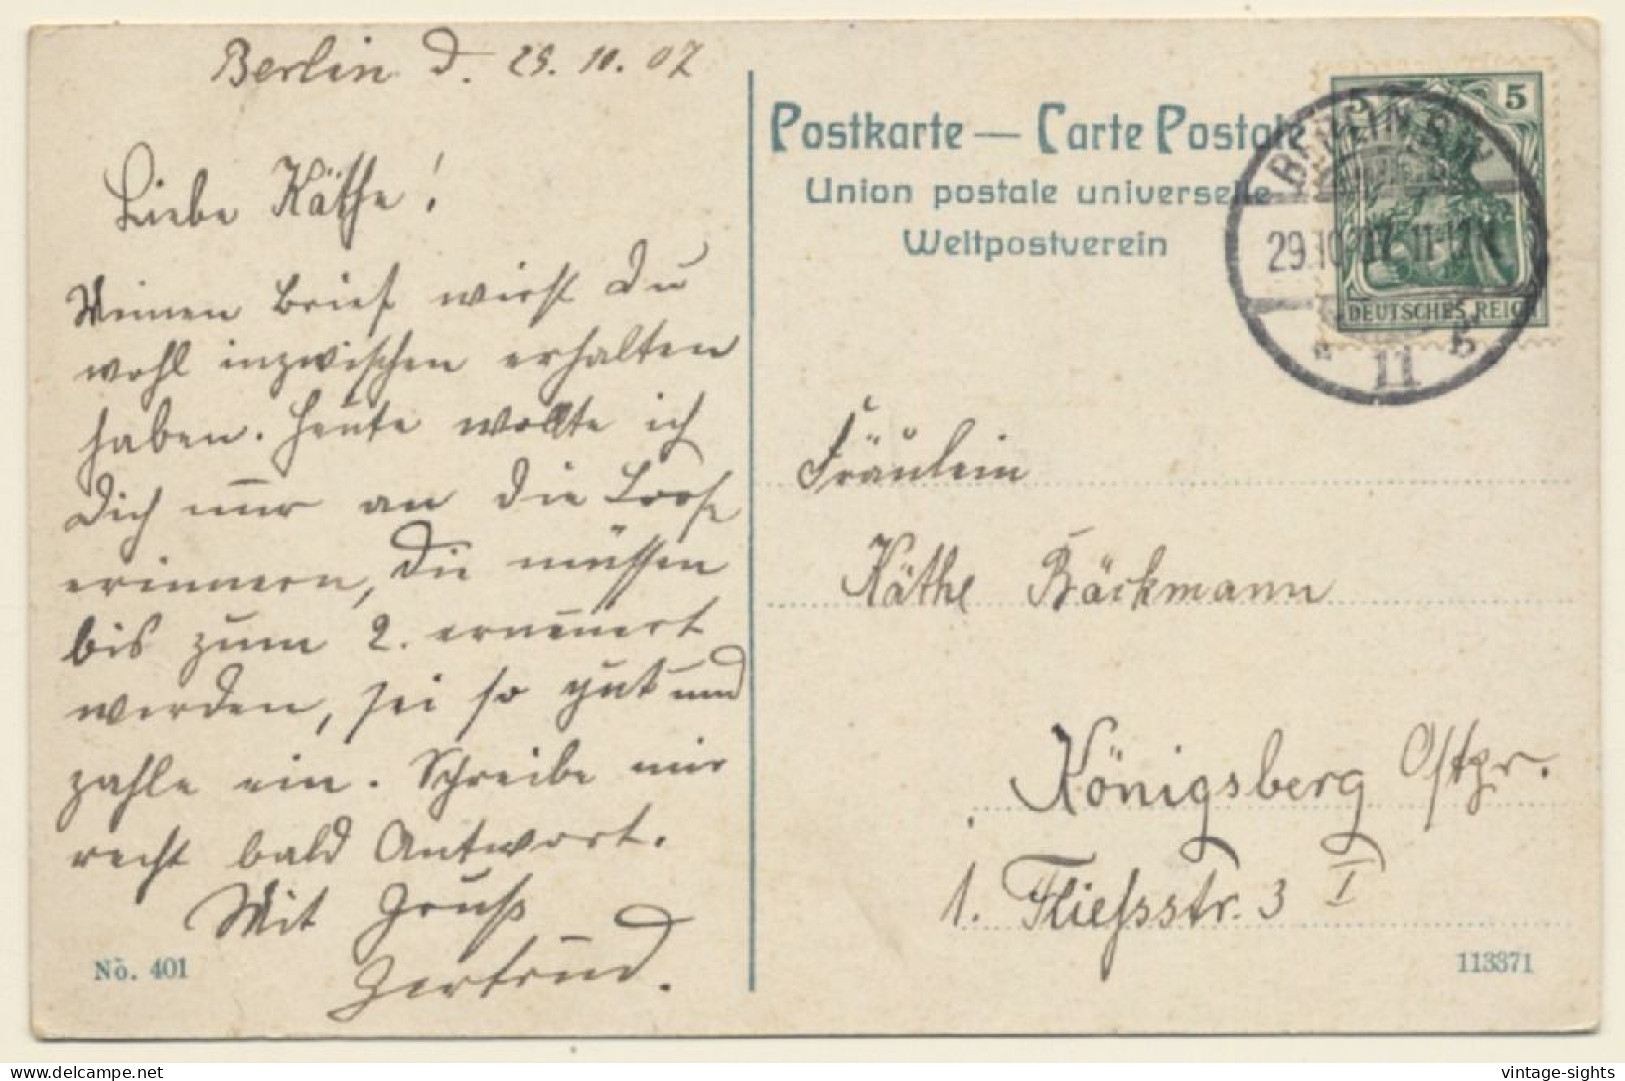 Berlin d. 29. 10. 07
Liebe Käthe!
Meinen Brief wirst Du
wohl inzwischen erhalten
haben. Heute wollte ich
Dich nur an die Loose
erinnern, die müssen
bis zum 2. erneuert
werden, sei so gut und
zahle ein. Schreibe mir
recht bald Antwort.
Mit Gruß
Gertrud.
No. 401
Postkarte — Carte Postale
Union postale universelle
Weltpostverein
5
DEUTSCHES REICH
BERLIN S.W.
29.10.07. 11-12
11
Fräulein
Käthe Bäckmann
Königsberg Ostpr.
1. Fliessstr. 3 I
113371
DELCAMPE.NET
vintage-sights